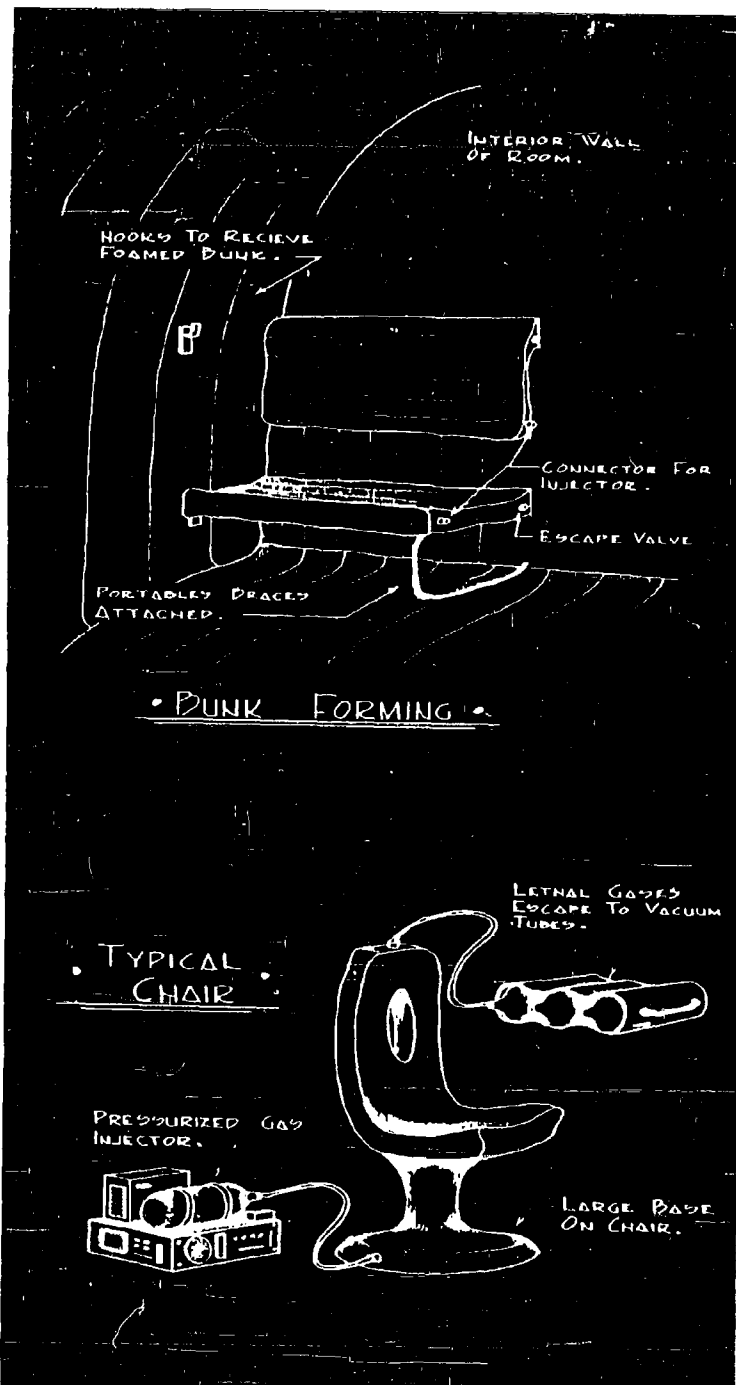 INTERIOR WALL
OF ROOM.
HOOKS TO RECIEVE
FOAMED BUNK.
CONNECTOR FOR
INJECTOR.
ESCAPE VALVE
PORTABLES BRACES
ATTACHED.
• BUNK FORMING •
LETHAL GASES
ESCAPE TO VACUUM
TUBES.
• TYPICAL •
CHAIR
PRESSURIZED GAS
INJECTOR.
LARGE BASE
ON CHAIR.